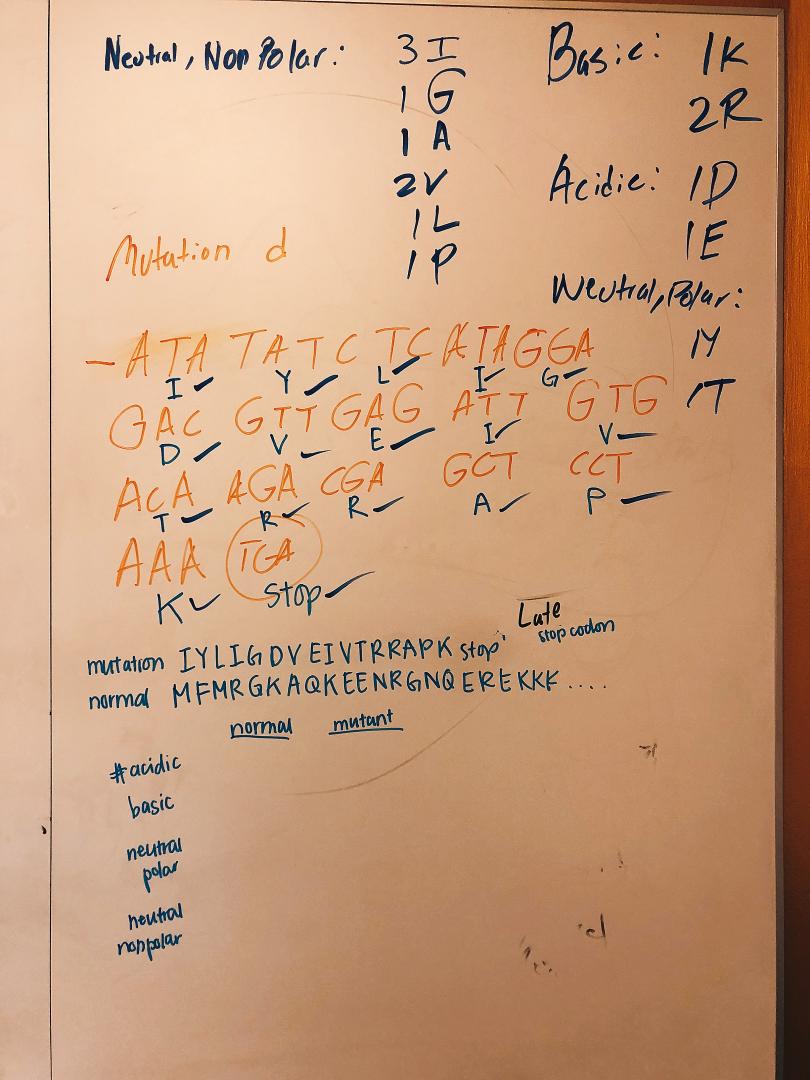 Neutral, NonPolar: 3 I
1 G
1 A
2 V
1 L
1 P
Basic: 1K
2R
Acidic: 1D
1E
Neutral, Polar:
1Y
1T
Mutation d
- ATA TAT CTC ATA GGA
I ✓ Y ✓ L ✓ I ✓ G ✓
GAC GTT GAG ATT GTG
D ✓ V ✓ E ✓ I ✓ V ✓
ACA AGA CGA GCT CCT
T ✓ R ✓ R ✓ A ✓ P ✓
AAA TGA
K ✓ Stop ✓
Late
stop codon
mutation IYLIGDVEIVTRRAPK stop
normal MFMRGKAQKEENRGNQEREKKK ....
normal mutant
#acidic
basic
neutral
polar
neutral
nonpolar